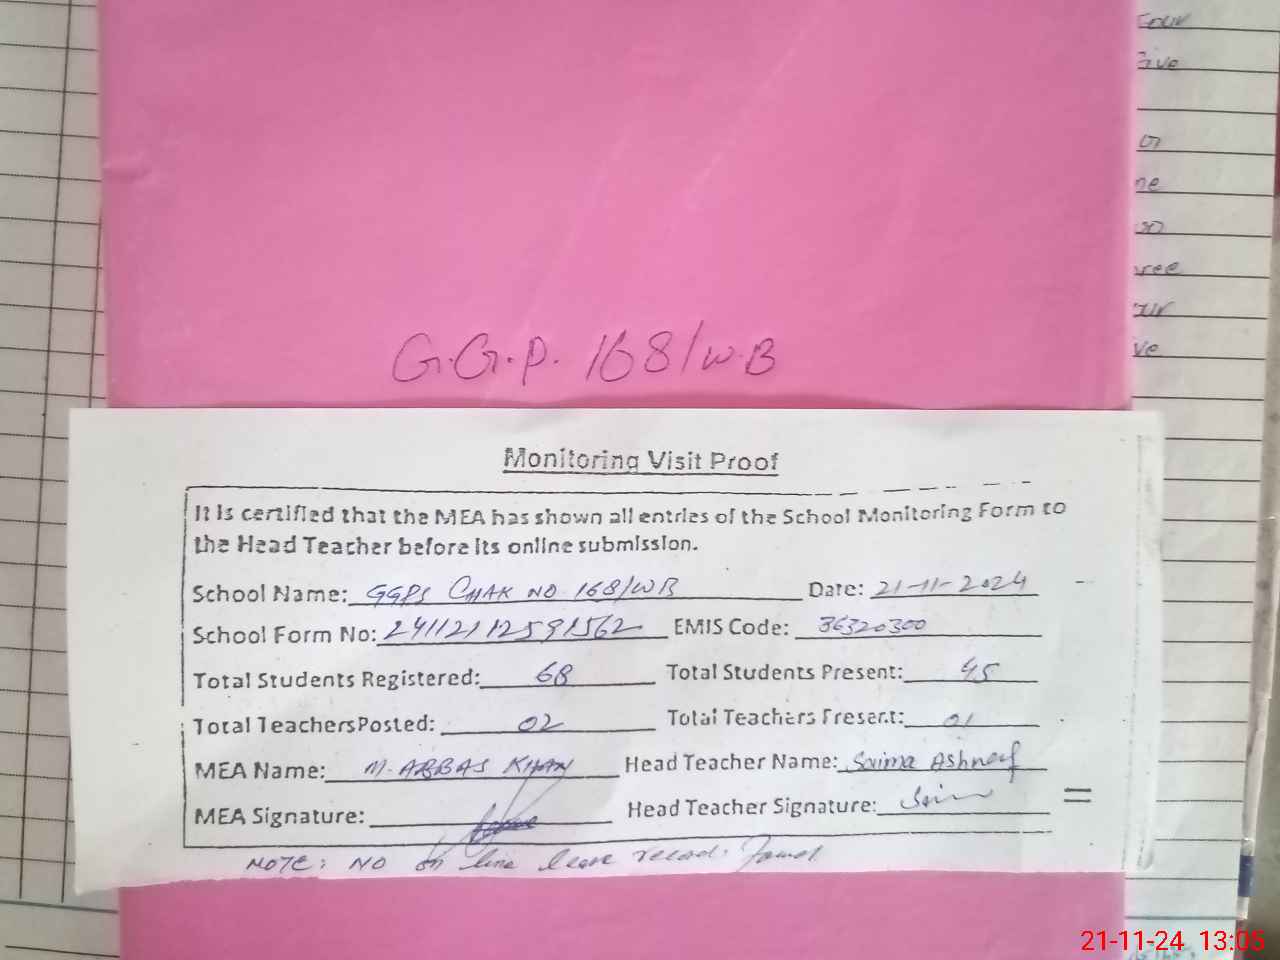 Four
Five
or
ne
so
ree
ur
ve
G.G.P. 168/W.B
Monitoring Visit Proof
It is certified that the MEA has shown all entries of the School Monitoring Form to
the Head Teacher before its online submission.
School Name: GGPS CHAK NO 168/WB Date: 21-11-2024
School Form No: 24112112591562 EMIS Code: 36320300
Total Students Registered: 68 Total Students Present: 45
Total Teachers Posted: 02 Total Teachers Present: 01
MEA Name: M. ABBAS KHAN Head Teacher Name: Saima Ashraf
MEA Signature: Head Teacher Signature:
NOTE: NO on line leave record. Found
21-11-24 13:05